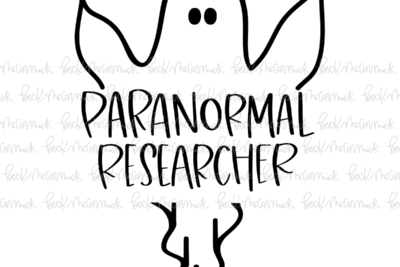 PARANORMAL
RESEARCHER